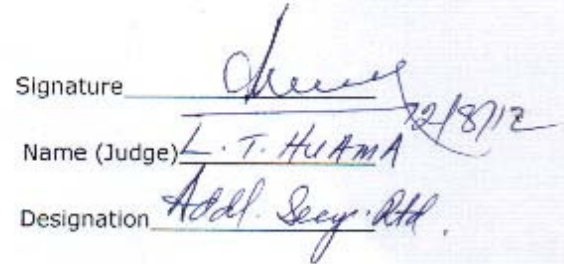 Signature
12/8/12
Name (Judge) L. T. HUAMA
Designation Addl. Secy. Rtd.